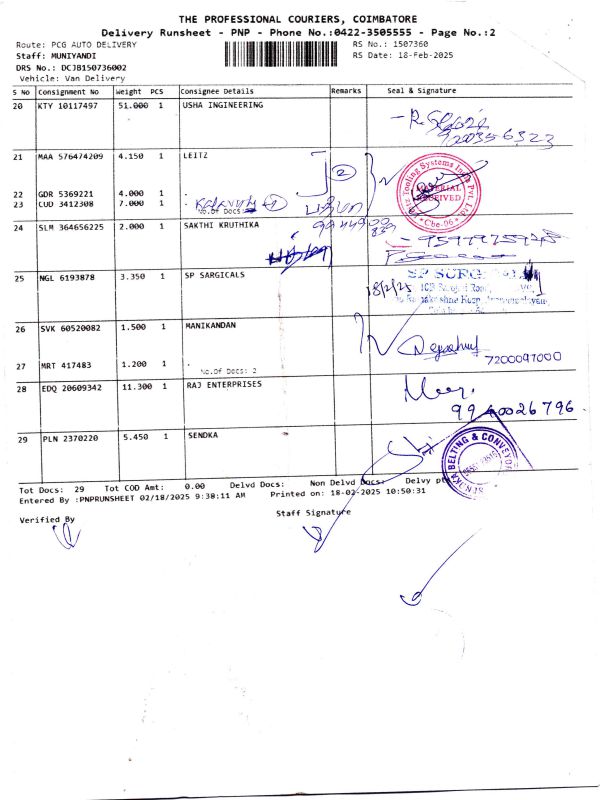 THE PROFESSIONAL COURIERS, COIMBATORE
Delivery Runsheet - PNP - Phone No.:0422-3505555 - Page No.:2
Route: PCG AUTO DELIVERY
RS No.: 1507360
Staff: MUNIYANDI
RS Date: 18-Feb-2025
DRS No.: DCJB150736002
Vehicle: Van Delivery
S No Consignment No Weight PCS Consignee Details Remarks Seal & Signature
20 KTY 10117497 51.000 1 USHA INGINEERING
920356323
21 MAA 576474209 4.150 1 LEITZ
2
22 GDR 5369221 4.000 1 .
23 CUD 3412308 7.000 1 .
No.Of Docs
Tooling Systems India Pvt. Ltd.
MATERIAL
RECEIVED
Cbe-06
24 SLM 364656225 2.000 1 SAKTHI KRUTHIKA
25 NGL 6193878 3.350 1 SP SARGICALS
18/2/25
SP SURGICALS
26 SVK 60520082 1.500 1 MANIKANDAN
7200097000
27 MRT 417483 1.200 1 .
No.Of Docs: 2
28 EDQ 20609342 11.300 1 RAJ ENTERPRISES
29 PLN 2370220 5.450 1 SENDKA
BELTING & CONVEYOR
Tot Docs: 29 Tot COD Amt: 0.00 Delvd Docs: Non Delvd Docs: Delvy
Entered By :PNPRUNSHEET 02/18/2025 9:38:11 AM Printed on: 18-02-2025 10:50:31
Verified By
Staff Signature